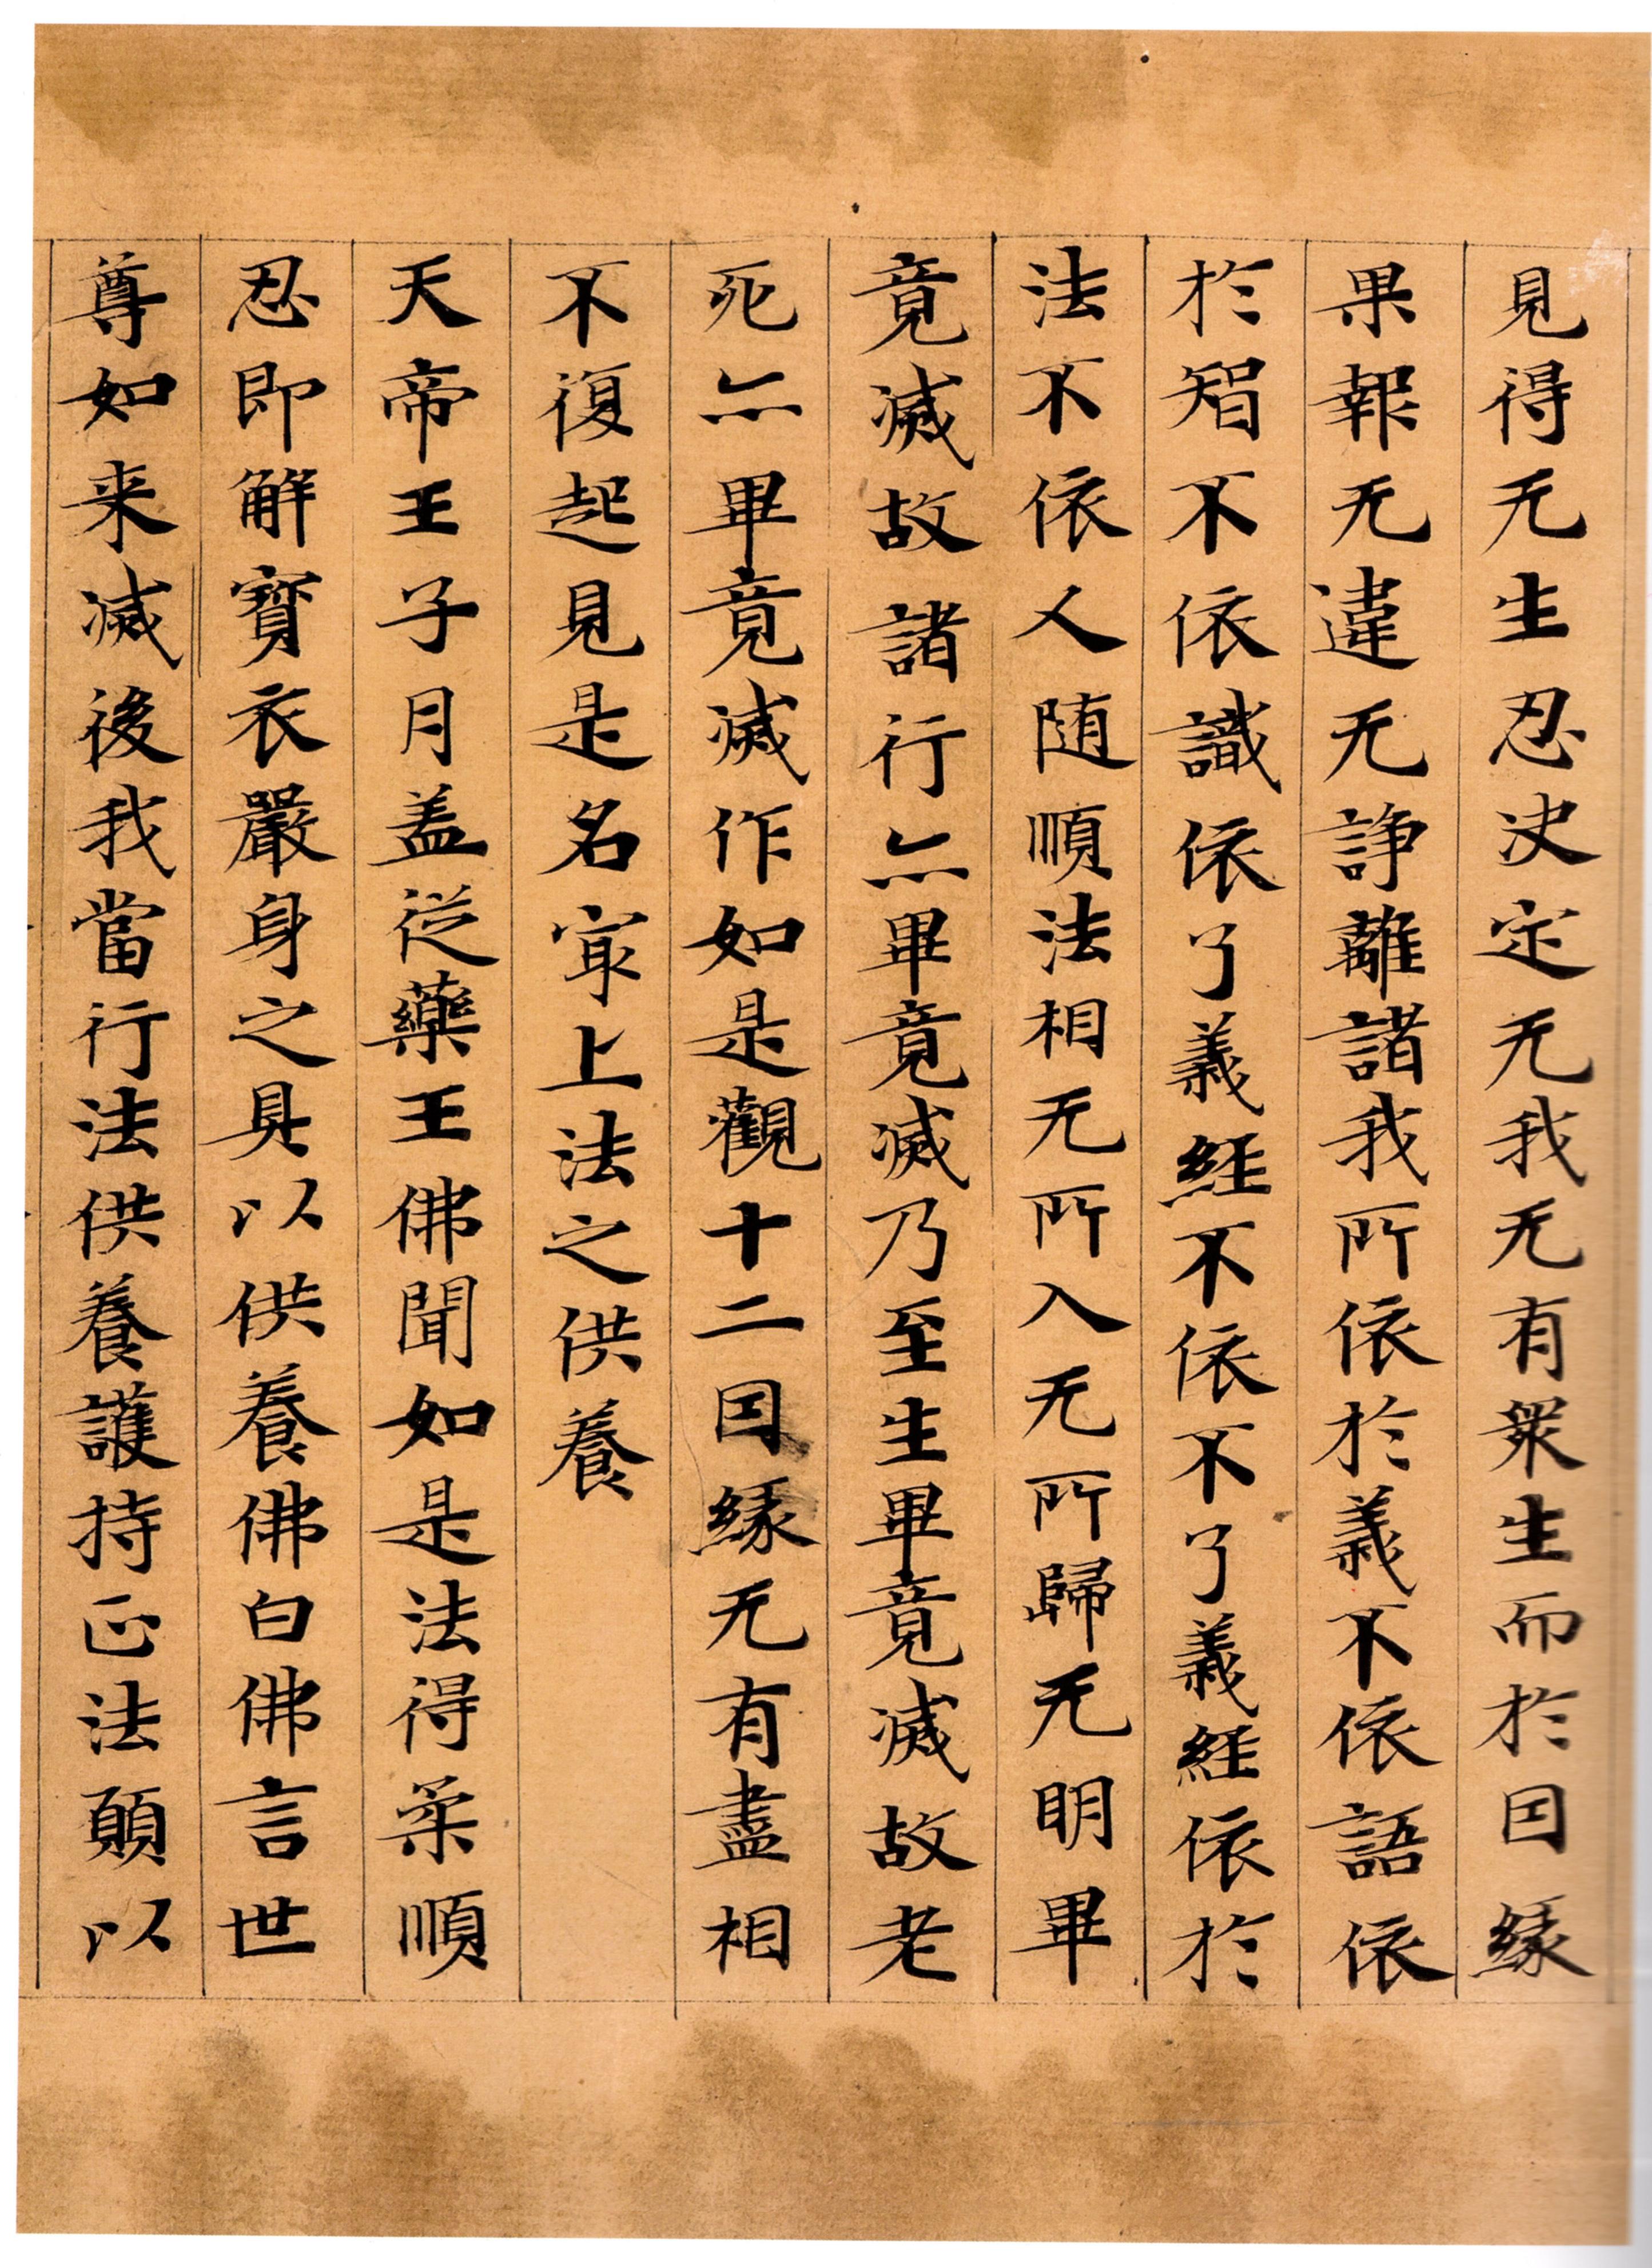 見得无生忍决定无我无有衆生而於因縁
果報无違无諍離諸我所依於義不依語依
於智不依識依了義經不依不了義經依於
法不依人随順法相无所入无所歸无明畢
竟滅故諸行亦畢竟滅乃至生畢竟滅故老
死亦畢竟滅作如是觀十二因縁无有盡相
不復起見是名冣上法之供養
天帝王子月盖従藥王佛聞如是法得柔順
忍即解寶衣嚴身之具以供養佛白佛言世
尊如来滅後我當行法供養護持正法願以